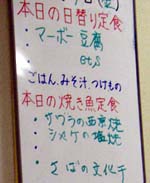 (金)
本日の日替り定食
・マーボー豆腐
ごはん、みそ汁、つけもの
本日の焼き魚定食
・サワラの西京焼
・シメサバの塩焼
・さばの文化干